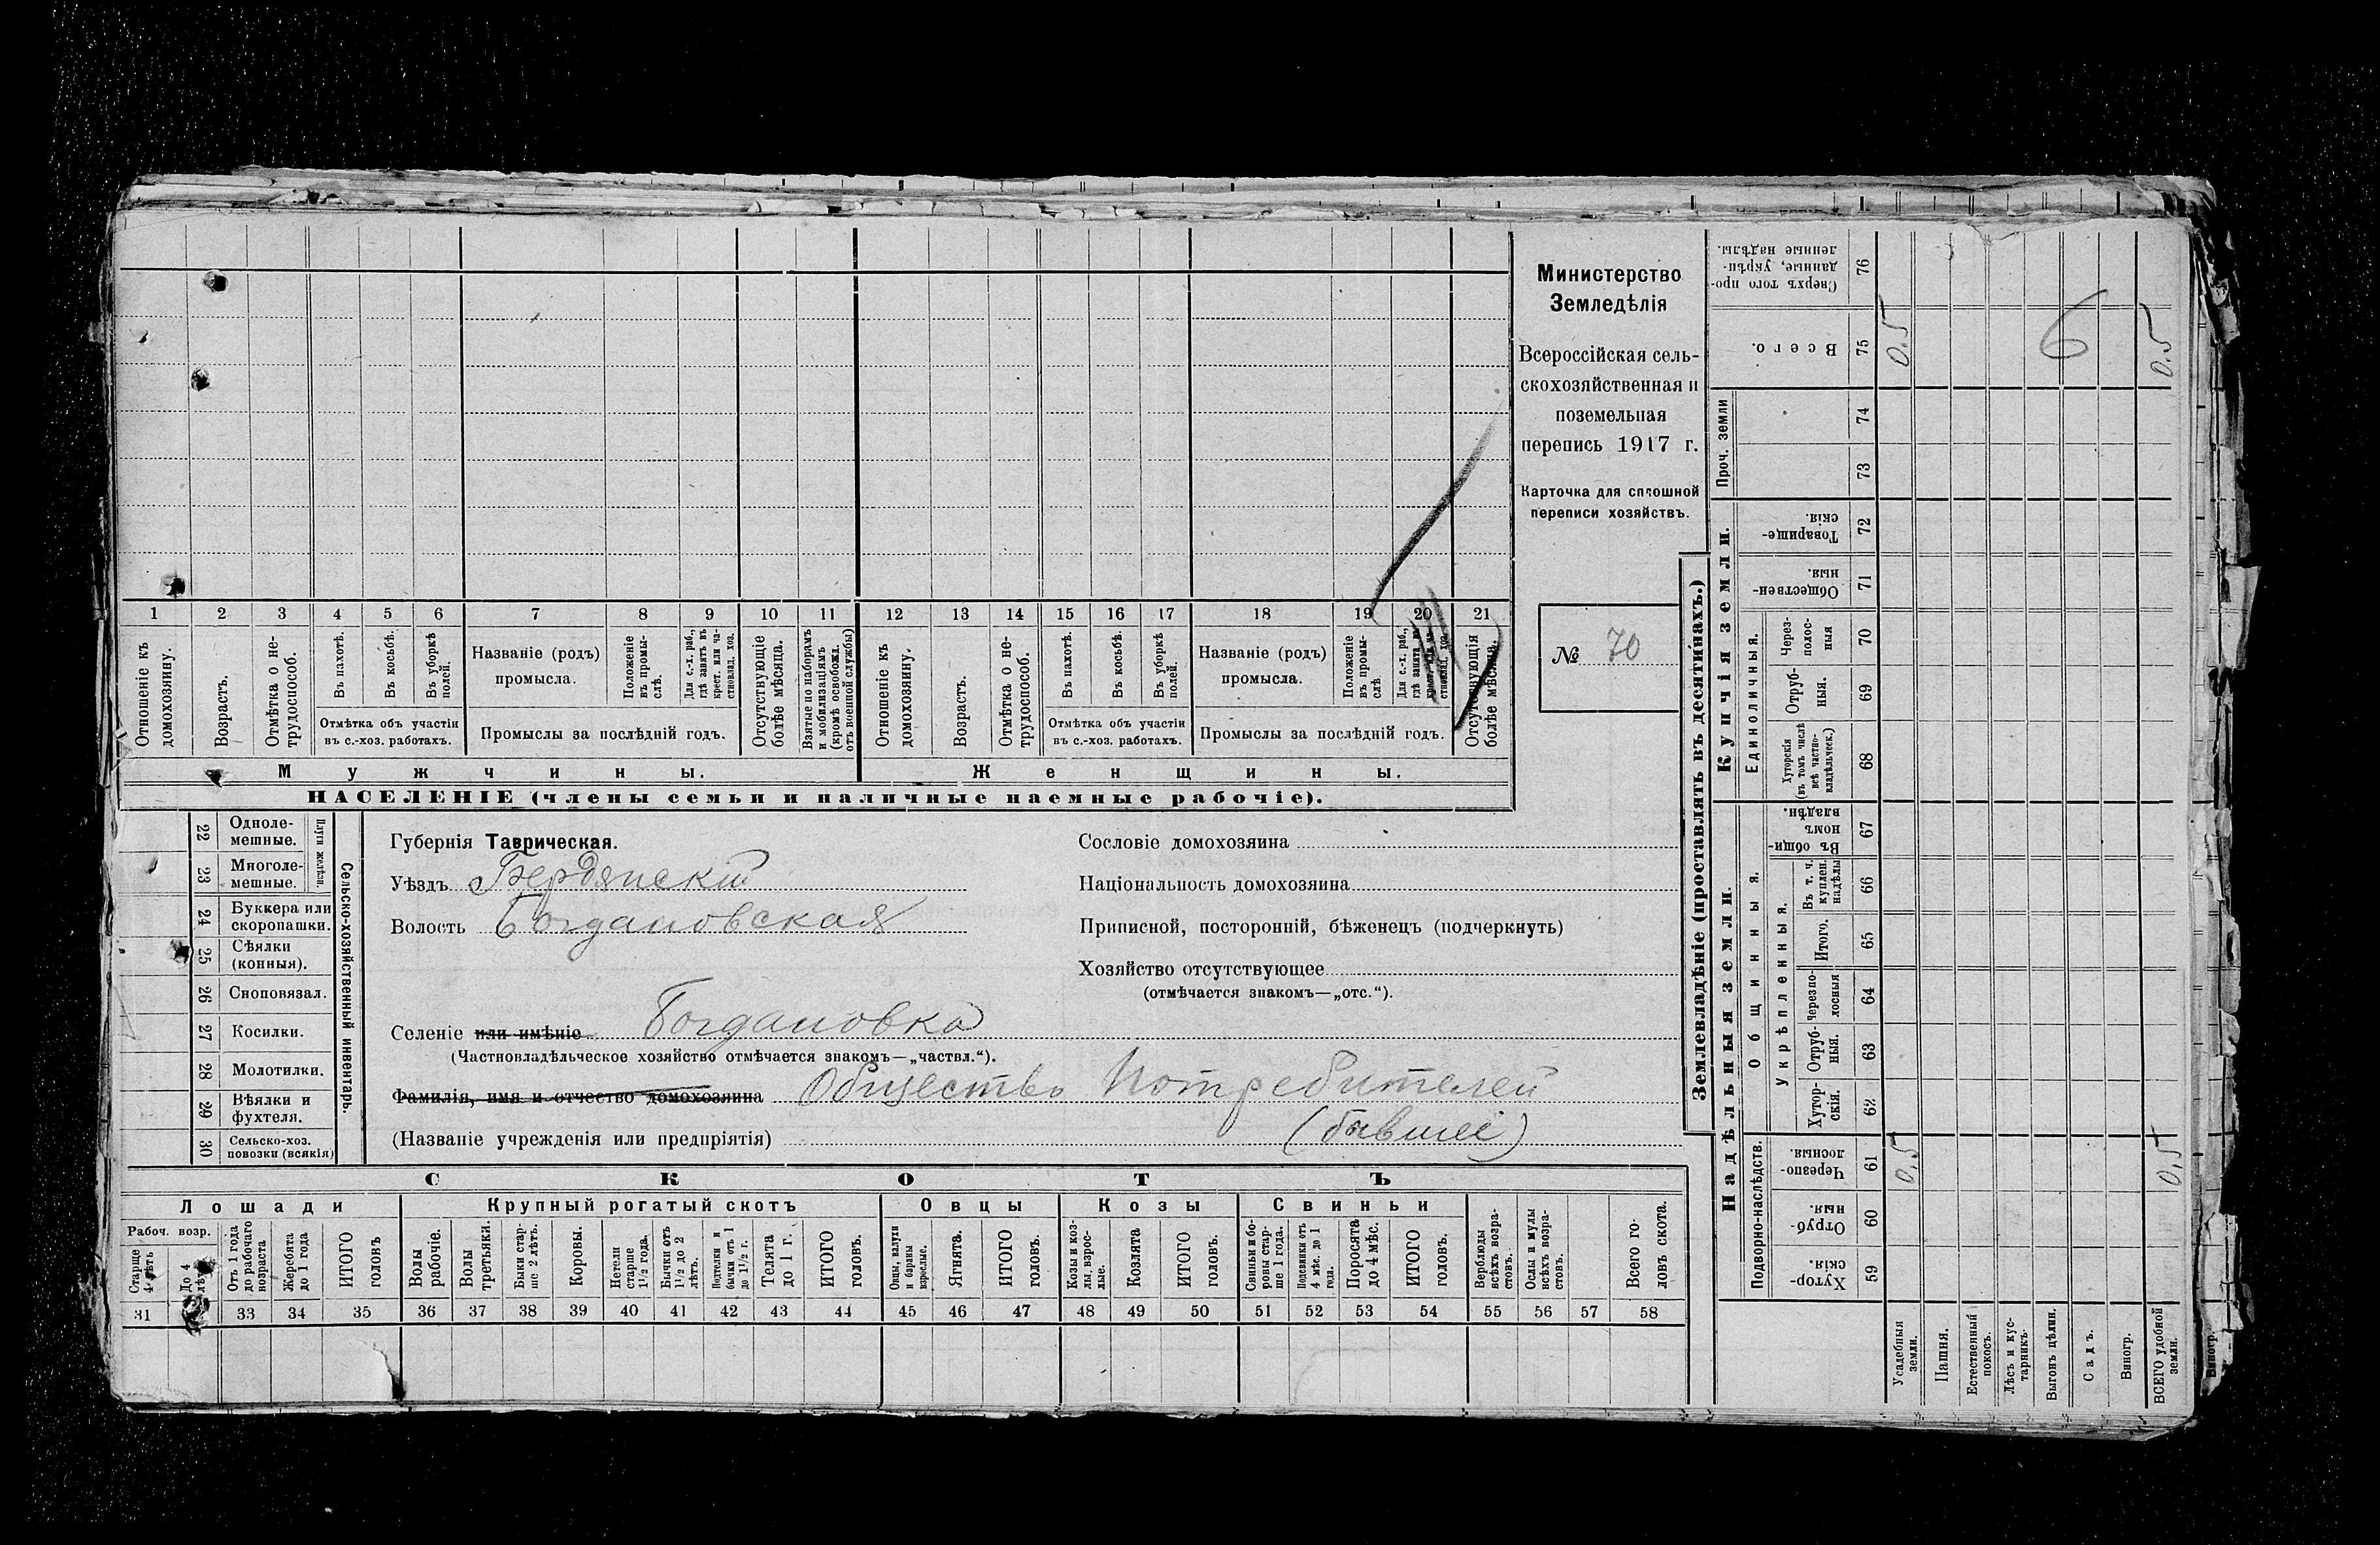 Министерство
Земледѣлія
Всероссійская сель-
скохозяйственная и
поземельная
перепись 1917 г.
Карточка для сплошной
переписи хозяйствъ.
№ 70
1 2 3 4 5 6 7 8 9 10 11 12 13 14 15 16 17 18 19 20 21
Отношеніе къ домохозяину.
Возрастъ.
Отмѣтка о не-трудоспособ.
Въ пахотѣ.
Въ косьбѣ.
Въ уборкѣ полей.
Отмѣтка объ участіи
въ с.-хоз. работахъ.
Названіе (родъ)
промысла.
Положеніе въ промы-слѣ.
Для с.-х. раб., гдѣ занятъ въ крест. или ча-стновлад. хоз.
Промыслы за послѣдній годъ.
Отсутствующіе болѣе мѣсяца.
Взятые по наборамъ и мобилизаціямъ (кромѣ освобожд. отъ военной службы)
Отношеніе къ домохозяину.
Возрастъ.
Отмѣтка о не-трудоспособ.
Въ пахотѣ.
Въ косьбѣ.
Въ уборкѣ полей.
Отмѣтка объ участіи
въ с.-хоз. работахъ.
Названіе (родъ)
промысла.
Положеніе въ промы-слѣ.
Для с.-х. раб., гдѣ занята въ крест. или ча-стновлад. хоз.
Промыслы за послѣдній годъ.
Отсутствующія болѣе мѣсяца.
Мужчины.
Женщины.
НАСЕЛЕНІЕ (члены семьи и наличные наемные рабочіе).
22 Одноле-мешные.
23 Многоле-мешные.
Плуги желѣзн.
24 Буккера или скоропашки.
25 Сѣялки (конныя).
26 Сноповязал.
27 Косилки.
28 Молотилки.
29 Вѣялки и фухтеля.
30 Сельско-хоз. повозки (всякія)
Сельско-хозяйственный инвентарь.
Губернія Таврическая.
Уѣздъ Бердянскій
Волость Богдановская
Селеніе или имѣніе Богдановка
(Частновладѣльческое хозяйство отмѣчается знакомъ—„частвл.“).
Фамилія, имя и отчество домохозяина Общество Потребителей
(Названіе учрежденія или предпріятія) (бывшее)
Сословіе домохозяина
Національность домохозяина
Приписной, посторонній, бѣженецъ (подчеркнуть)
Хозяйство отсутствующее
(отмѣчается знакомъ—„отс.“).
СКОТЪ
Лошади
Крупный рогатый скотъ
Овцы
Козы
Свиньи
Рабоч. возр.
Старше 4 лѣтъ
До 4 лѣтъ
Отъ 1 года до рабочаго возраста
Жеребята до 1 года
ИТОГО головъ
Волы рабочіе.
Волы третьяки.
Быки стар-ше 2 лѣтъ.
Коровы.
Нетели старше 1½ года.
Бычки отъ 1½ до 2 лѣтъ.
Подтелки и бычки отъ 1 до 1½ г.
Телята до 1 г.
ИТОГО головъ.
Овцы, валухи и бараны взрослые.
Ягнята.
ИТОГО головъ.
Козы и коз-лы, взрос-лые.
Козлята
ИТОГО головъ.
Свиньи и бо-ровы стар-ше 1 года.
Подсвинки отъ 4 мѣс. до 1 года.
Поросята до 4 мѣс.
ИТОГО головъ.
Верблюды всѣхъ возра-стовъ.
Ослы и мулы всѣхъ возра-стовъ.
Всего го-ловъ скота.
31 33 34 35 36 37 38 39 40 41 42 43 44 45 46 47 48 49 50 51 52 53 54 55 56 57 58
Землевладѣніе (проставлять въ десятинахъ.)
Надѣльныя земли.
Купчія земли.
Проч. земли
Подворно-наслѣдств.
Общинныя.
Укрѣпленныя.
Единоличныя.
Сверхъ того про-данные, укрѣп-ленные надѣлы. 76
Всего. 75 0.5 6 0.5
74
73
Товарище-скія. 72
Обществен-ныя. 71
Через-полос-ныя 70
Отруб-ныя. 69
Хуторскія (въ томъ числѣ всѣ частно-владѣльческ.) 68
Въ общин-номъ владѣн. 67
Въ т. ч. куплен. надѣлы 66
Итого. 65
Черезпо-лосныя 64
Отруб-ныя. 63
Хутор-скія. 62
Черезпо-лосныя. 61 0.5 0.5
Отруб-ныя. 60
Хутор-скія. 59
Усадебныя земли.
Пашня.
Естественный покосъ.
Лѣсъ и кус-тарникъ.
Выгонъ цѣлин.
Садъ.
Виногр.
ВСЕГО удобной земли.
Виногр.